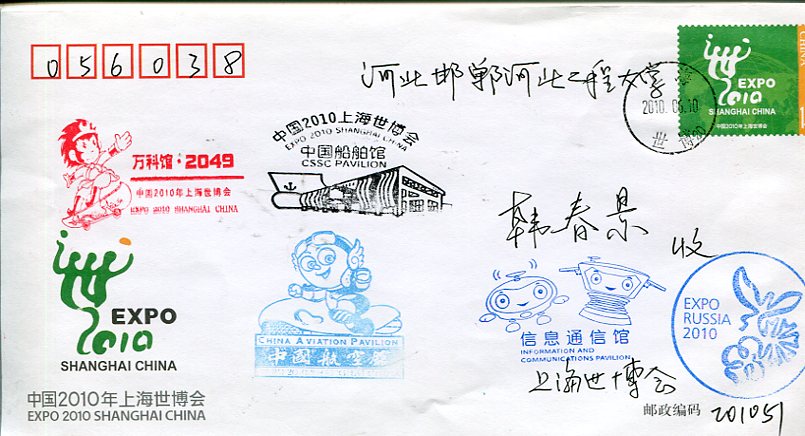 056038
河北邯郸河北工程大学
EXPO
2010
SHANGHAI CHINA
中国2010年上海世博会
CHINA
上海
2010.06.10
世博20
万科馆·2049
中国2010年上海世博会
EXPO 2010 SHANGHAI CHINA
中国2010上海世博会
EXPO 2010 SHANGHAI CHINA
中国船舶馆
CSSC PAVILION
韩春景 收
EXPO
2010
SHANGHAI CHINA
中国2010年上海世博会
EXPO 2010 SHANGHAI CHINA
CHINA AVIATION PAVILION
中國航空館
信息通信馆
INFORMATION AND
COMMUNICATIONS PAVILION
EXPO
RUSSIA
2010
上海世博会
邮政编码 201051